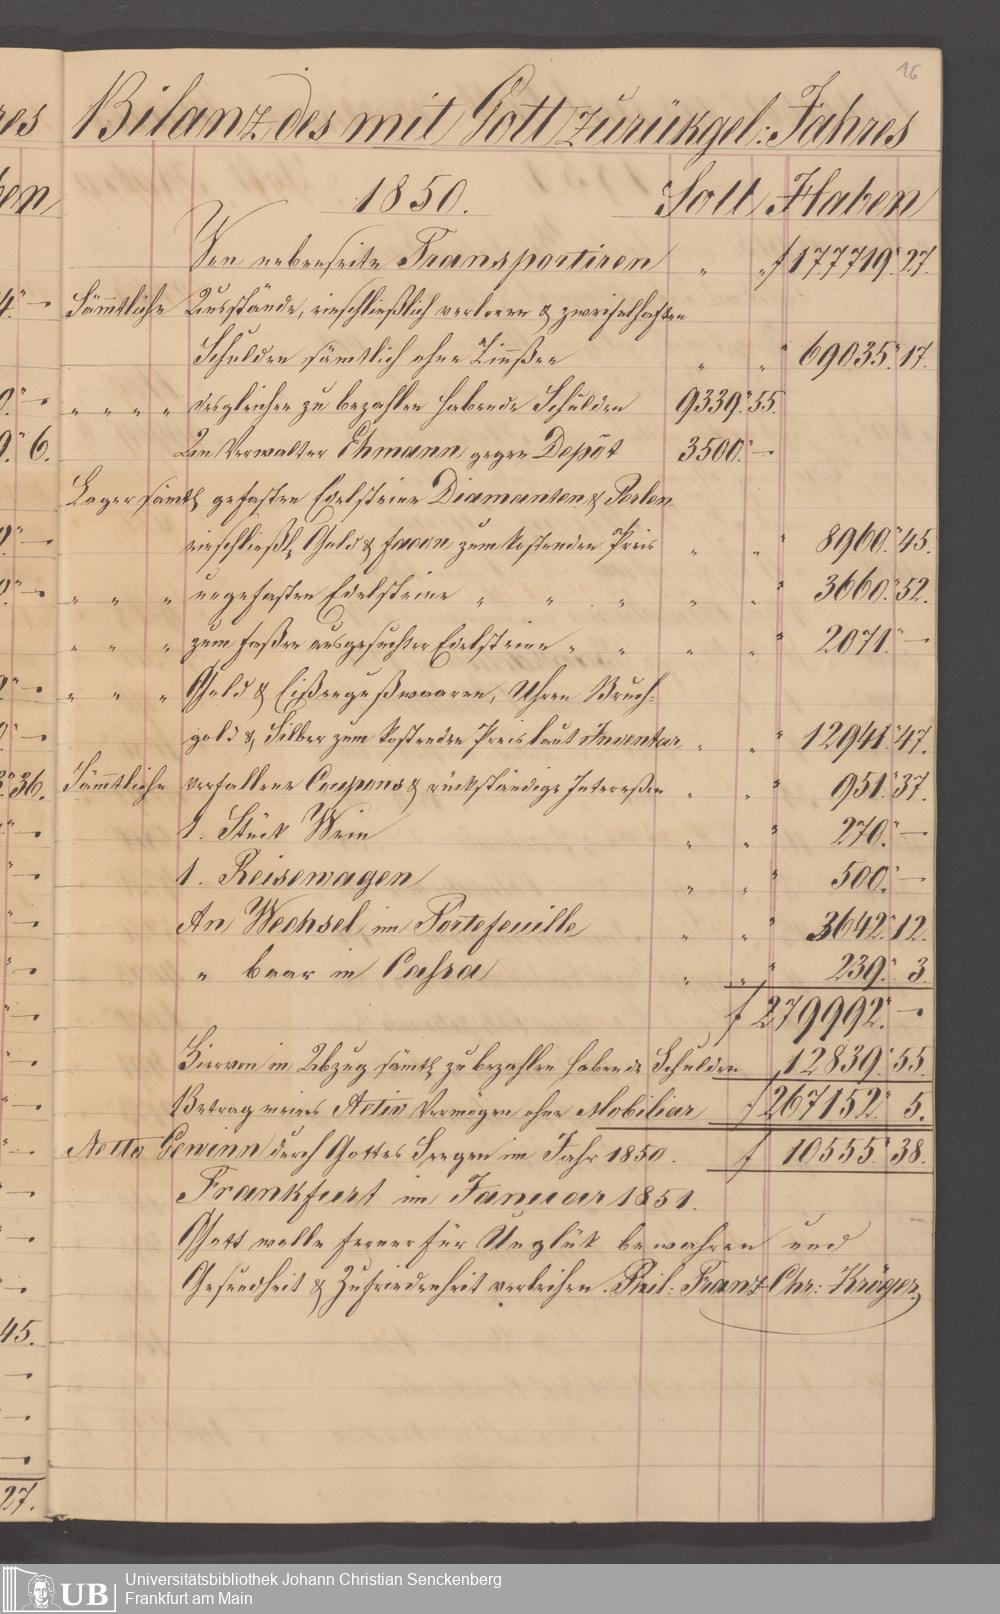 16
res Bilanz des mit Gott zurükgel: Jahres
ben 1850. Soll Haben
Von nebenseite Transportiren " " f 177719." 27.
4." — Sämtliche Ausstände, einschließlich verloren & zweifelhaften
Schulden sämtlich ohne Zinßen " " " 69035." 17.
0." — " " " " desgleichen zu bezahlen habende Schulden 9339." 55.
0." 6. An Verwalter Ehmann gegen Depôt 3500." —
Lager sämtl gefasten Edelsteine Diamanten & Perlen
0." — einschließl. Gold & facon zum kostenden Preis " " " 8960." 45.
0." — " " " ungefasten Edelsteine " " " " " " 3660." 52.
" " " zum faßen ausgesuchter Edelsteine " " " " " 2071." —
2." — " " " Gold & Eißengußwaaren, Uhren Bruch-
0." — gold & Silber zum kostenden Preis laut Inventar " " " 12941." 47.
3." 36. Sämmtliche verfallene Coupons & rückständige Intereßen " " " 951." 37.
" — 1. Stück Wein " " " 270." —
" — 1. Reisewagen " " " 500." —
" — An Wechsel im Portefeuille " " " 3642." 12.
" — " baar in Cassa " " " 239." 3.
" — f 279992." —
" — Hiervon in Abzug sämtl zu bezahlen habende Schulden 12839." 55.
" — Betrag meines Activ Vermögen ohne Mobiliar f 267152." 5.
" — Netto Gewinn durch Gottes Seegen im Jahr 1850. f 10555." 38.
" — Frankfurt im Januar 1851.
" — Gott wolle ferner für Unglük bewahren und
" — Gesundheit & Zufriedenheit verleihen. Phil: Franz Chr: Kröger
45.
—
—
—
27.
UB Universitätsbibliothek Johann Christian Senckenberg
Frankfurt am Main